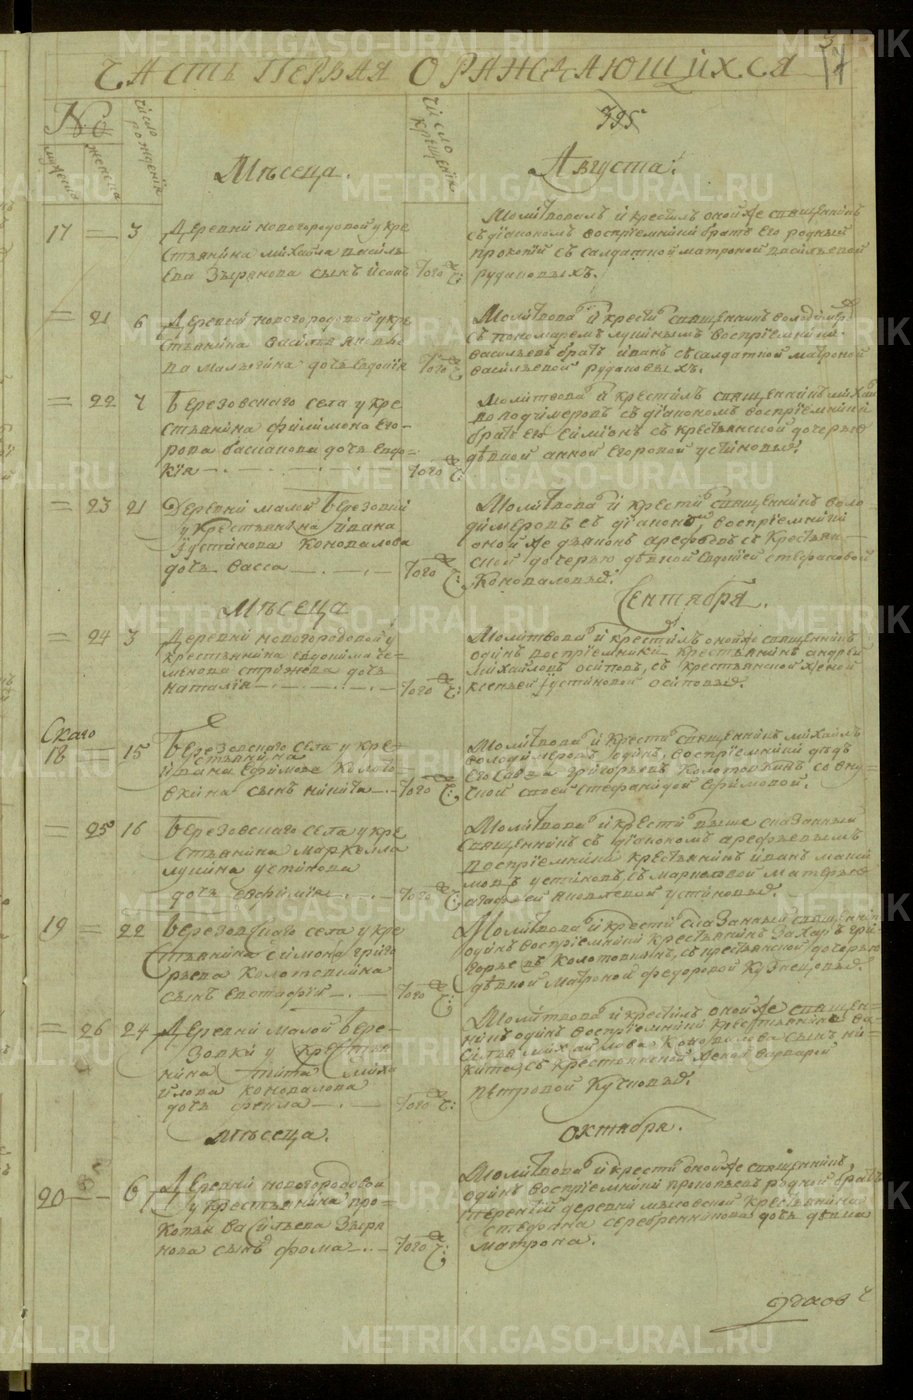 METRIKI.GASO-URAL.RU
Часть первая о раждающихся
№
мужеска
женска
число рожденïя
число крещенïя
Месеца.
Августа.
17 — 3
Деревни новогородовой у кре
стьянина михайла василь
ева Зырянова сынъ
того ч:
Молитвовалъ и крестилъ онойже священникъ
съ дïакономъ воспрïемники братъ Его родный
прокопïй съ салдаткой матроной васильевой
рудановыхъ.
= 21 6
Деревни новогородовой у кре
стьянина
малыгина дочь Евдокïя
того ч:
Молитвова и крести священникъ володимер
съ пономаремъ воспрïемники
васильевъ братъ иванъ съ салдаткой матроной
васильевой рудановыхъ.
= 22 7
Березовскаго села у кре
стьянина филимона Его
рова дочь Евдо
кïя
того ч:
Молитвова и крестилъ священникъ михаи
володимеровъ съ дïакономъ воспрïемники
братъ Его Симïонъ съ крестьянской дочерью
девкой анной Егоровой устиновы.
= 23 21
Деревни малой Березовки
у крестьянина ивана
устинова Коновалова
дочь васса
того ч:
Молитвова и крести священникъ воло
димеровъ съ дïакономъ воспрïемники
онойже дьяконъ арефьевъ съ крестьян
ской дочерью девкой Евдокïей стефановой
Коноваловы.
Месеца
Сентября.
= 24 3
Деревни новогородовой у
крестьянина Евдокима се
менова стрижева дочь
наталïя
того ч:
Молитвова и крестилъ онойже священникъ
одинъ воспрïемники крестьянинъ андрей
михайловъ осиповъ, съ крестьянской женой
ксеньей устиновой осиповы.
18 — 15
Березовскаго села у кре
стьянина
ивана Ефимова Колото
вкина сынъ никита
того ч:
Молитвова и крести священникъ михаилъ
володимеровъ одинъ, воспрïемники дядъ
григорьевъ Колотовкинъ со вну
кой своей стефанидой Ефимовой.
= 25 16
Березовскаго села у кре
стьянина маркелла
лукина устинова
дочь Евфимïя
того ч:
Молитвова и крести выше сказанный
священникъ съ дïакономъ арефьевымъ
воспрïемники крестьянинъ иванъ маки
мовъ устиновъ, съ маркеловой матерью
агафьей яковлевой устиновы.
19 = 22
Березовскаго села у кре
стьянина Симона григо
рьева Колотовкина
сынъ Евстафïй
того ч:
Молитвова и крести сказанный священни
одинъ воспрïемники крестьянинъ захаръ гри
горьевъ Колотовкинъ, съ крестьянской дочерью
девкой Матроной федоровой Кузнецовы.
= 26 24
Деревни малой Бере
зовки у крестья
нина тита миха
йлова коновалова
дочь фекла
того ч:
Молитвова и крестилъ онойже священ
никъ одинъ воспрïемники крестьянина ва
силья михайлова Коновалова сынъ ни
кита, съ крестьянской женой варварой
петровой Кучковы.
месеца.
октября.
20 — 6
Деревни новогородовой
у крестьянина про
копья васильева Зыря
нова сынъ фома
того ч:
Молитвова и крести онойже священникъ,
одинъ воспрïемники прокопьевъ родной братъ
терентïй деревни мысовской крестьянина
стефана серебренникова дочь девка
матрона.